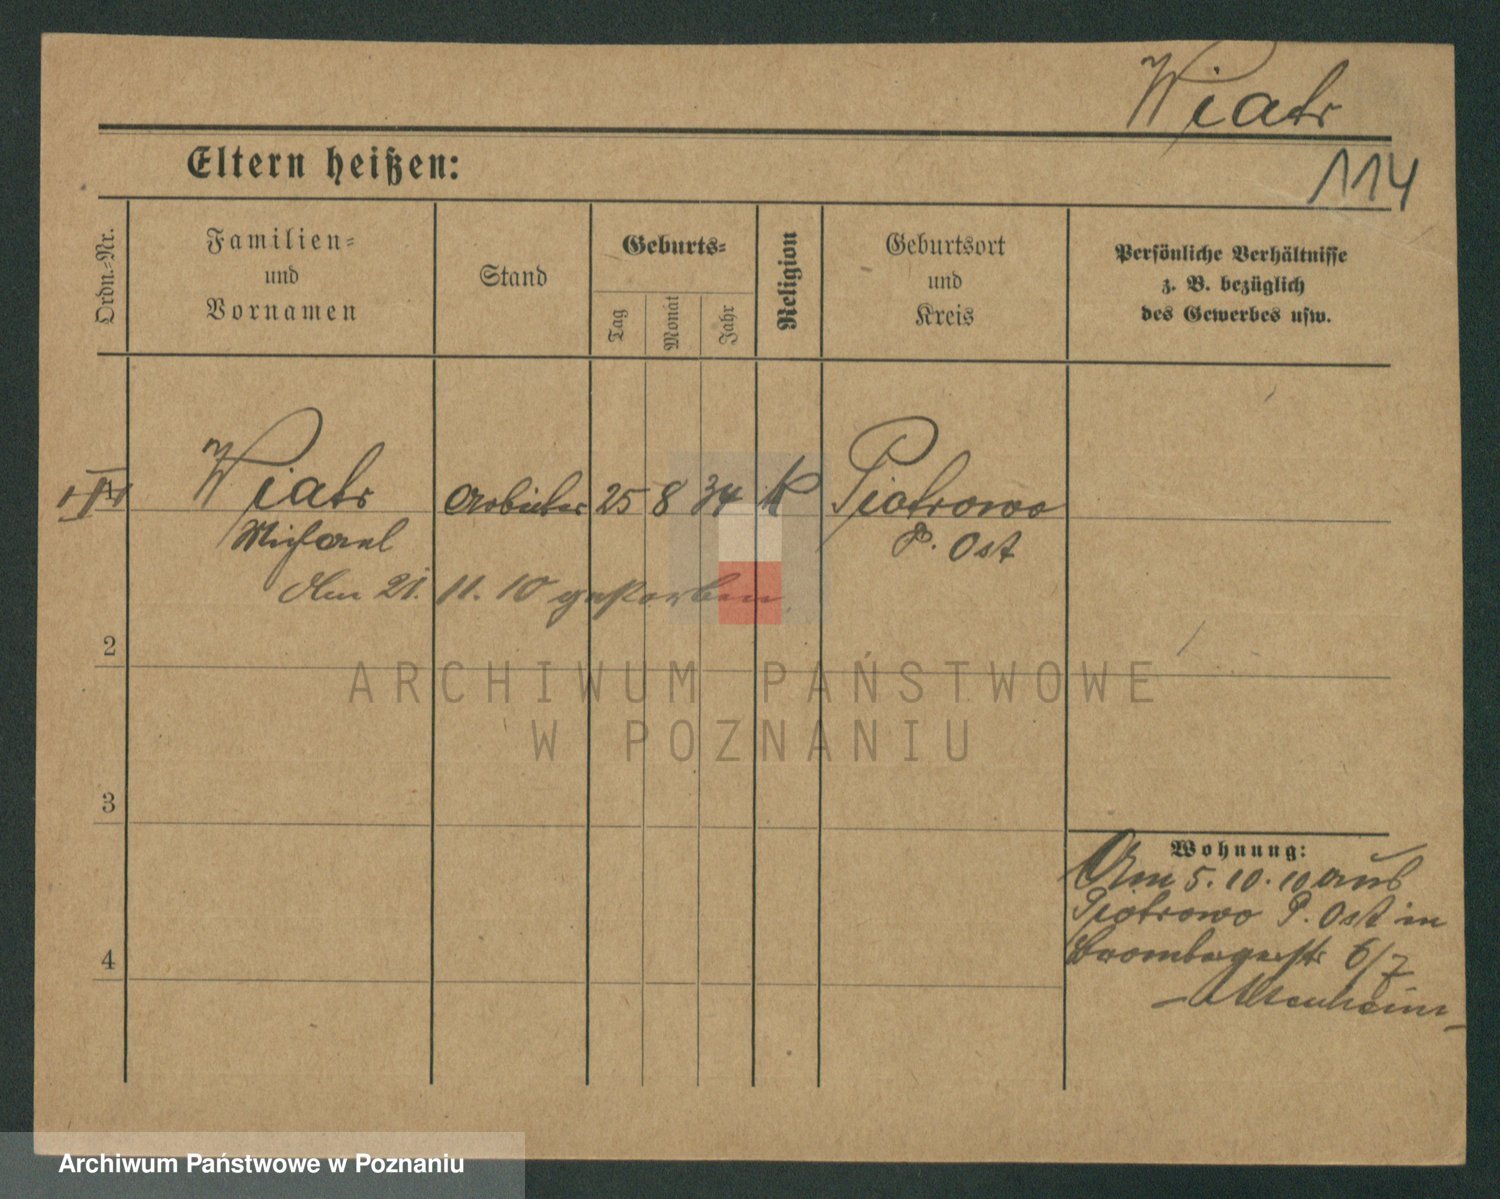 Wiatr
114
Eltern heißen:
Ordn.-Nr.
Familien-
und
Vornamen
Stand
Geburts-
Tag
Monat
Jahr
Religion
Geburtsort
und
Kreis
Persönliche Verhältnisse
z. B. bezüglich
des Gewerbes usw.
1 Wiatr Arbeiter 25 8 34 K Piotrowo
Michael P. Ost
Am 21. 11. 10 gestorben
2
ARCHIWUM PAŃSTWOWE
W POZNANIU
3
Wohnung:
Am 5. 10. 10 aus
Piotrowo P. Ost in
Brombergerstr 6/7
- Altenheim -
4
Archiwum Państwowe w Poznaniu